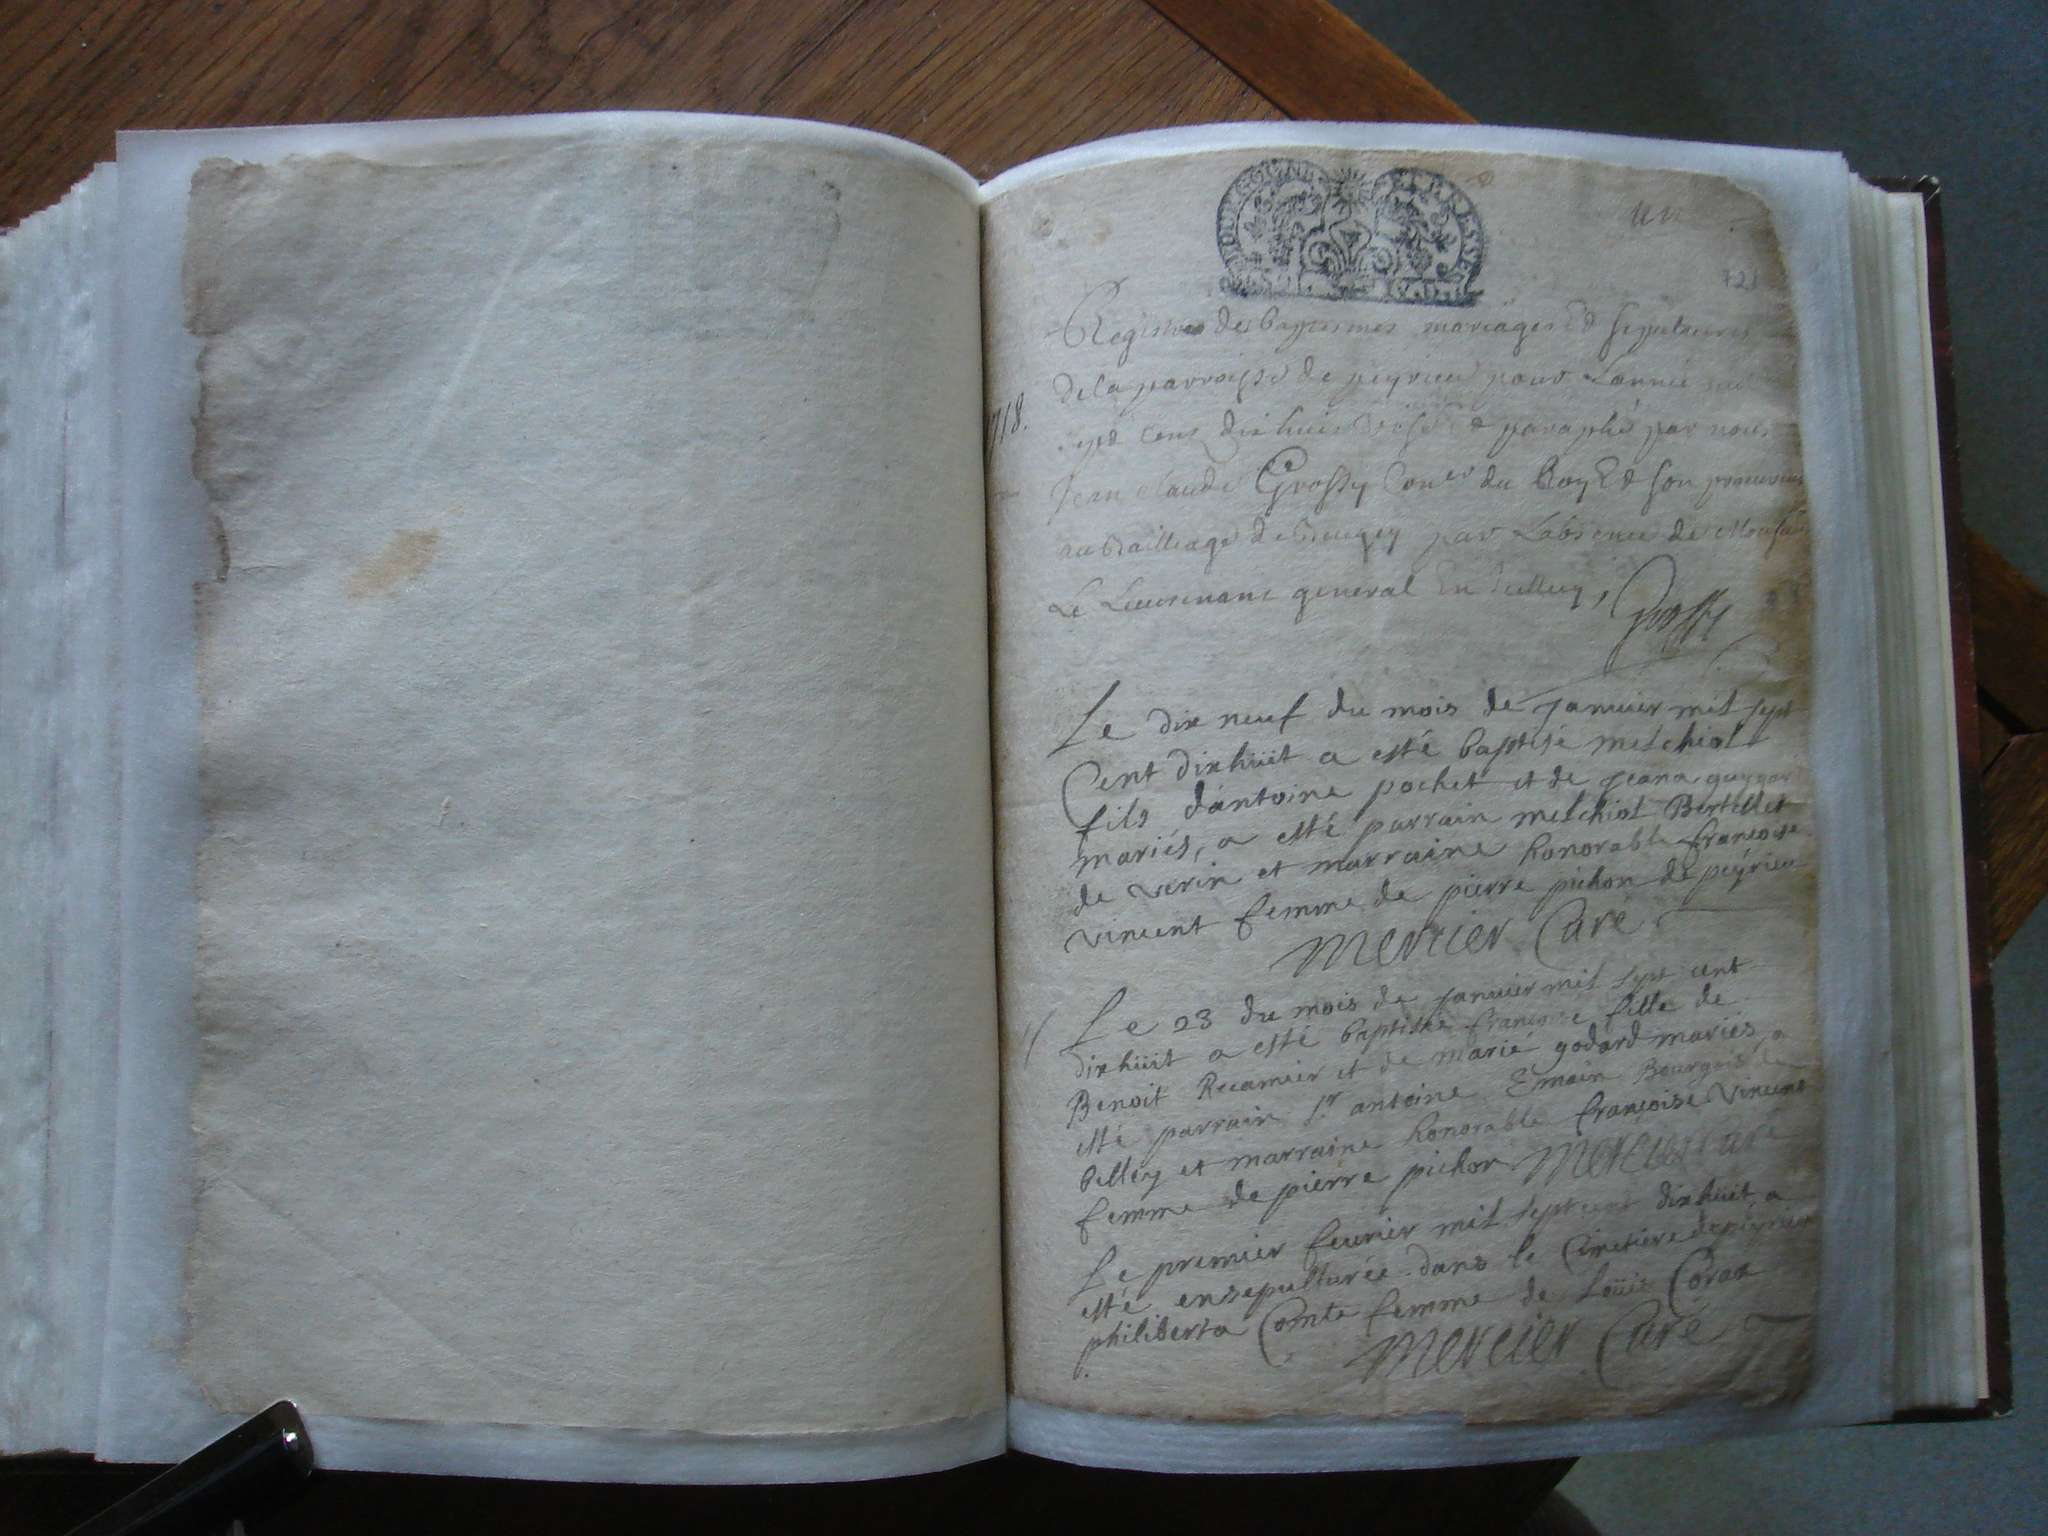 BOURGOGNE ET BRESSE
721
Registre des baptesmes mariages Et sepultures
de la parroisse de peyrieu pour Lannée mil
1718.
sept cens dix huit Cotté Et paraphé par nous
Jean claude Grossy Con.er du Roy Et son procureur
au Bailliage de Beugey par Labsence de Monsieur
Le Lieutenant general En Belley, Grossy
Le dix neuf du mois de janvier mil sept
Cent dixhüit a esté baptisé melchiol
fils d'antoine pochet et de jeana guygar
mariés, a esté parrain melchiol Bertellet
de verin et marraine honorable françoise
vincent femme de pierre pichon de peÿrieu
Mercier Curé
Le 23 du mois de janvier mil sept cent
dixhüit a esté baptisée françoise fille de
Benoit Recamier et de marie godard mariés, a
esté parrain s.r antoine Emain Bourgois de
belley et marraine honorable françoise vincent
femme de pierre pichon Mercier Curé
Le premier feurier mil sept cent dixhüit a
esté ensepulturée dans le Cimetiere de peÿrieu
philiberta Comte femme de Loüis Coraz
Mercier Curé